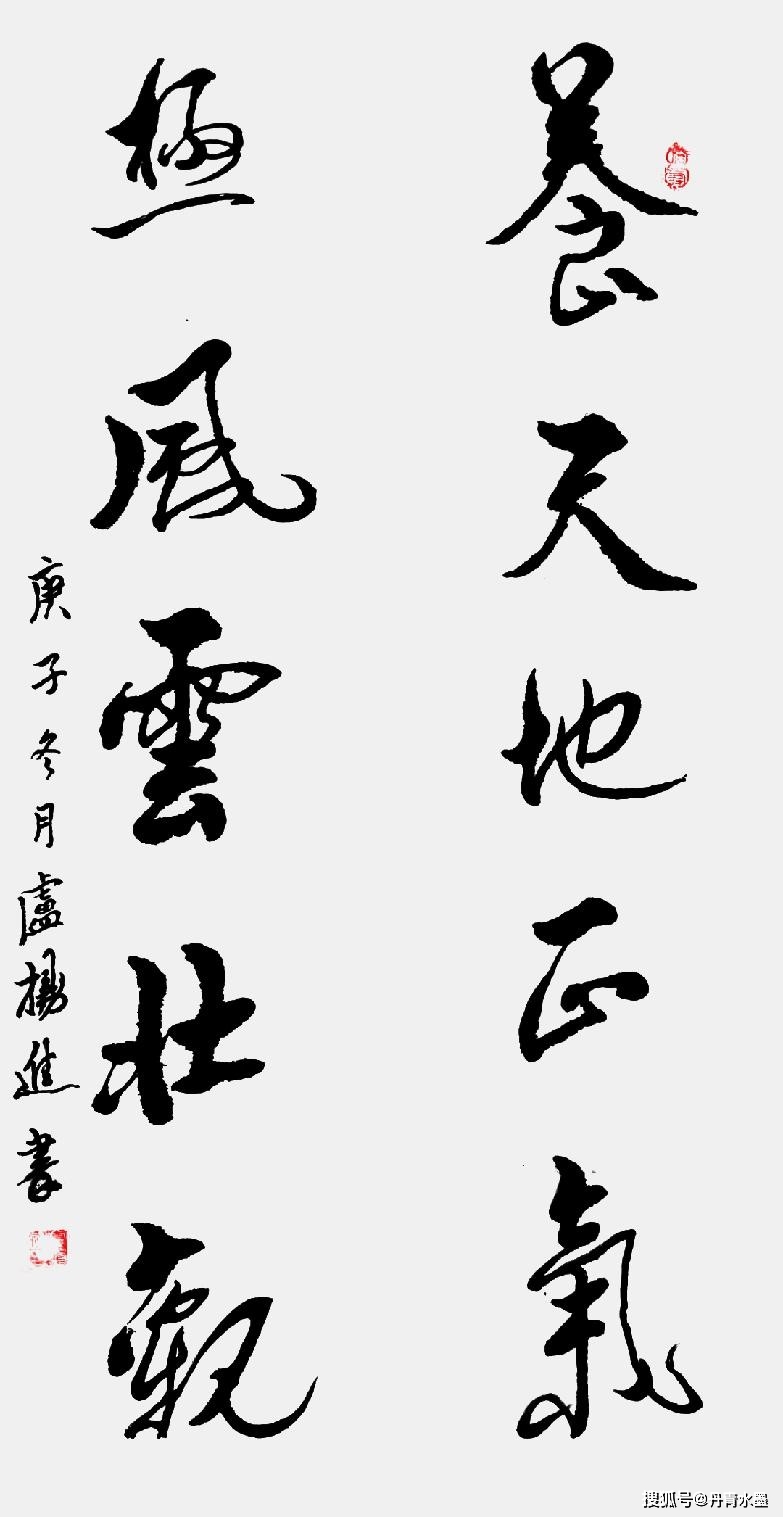 養天地正氣
極風雲壯觀
庚子冬月盧楊進書
搜狐号@丹青水墨